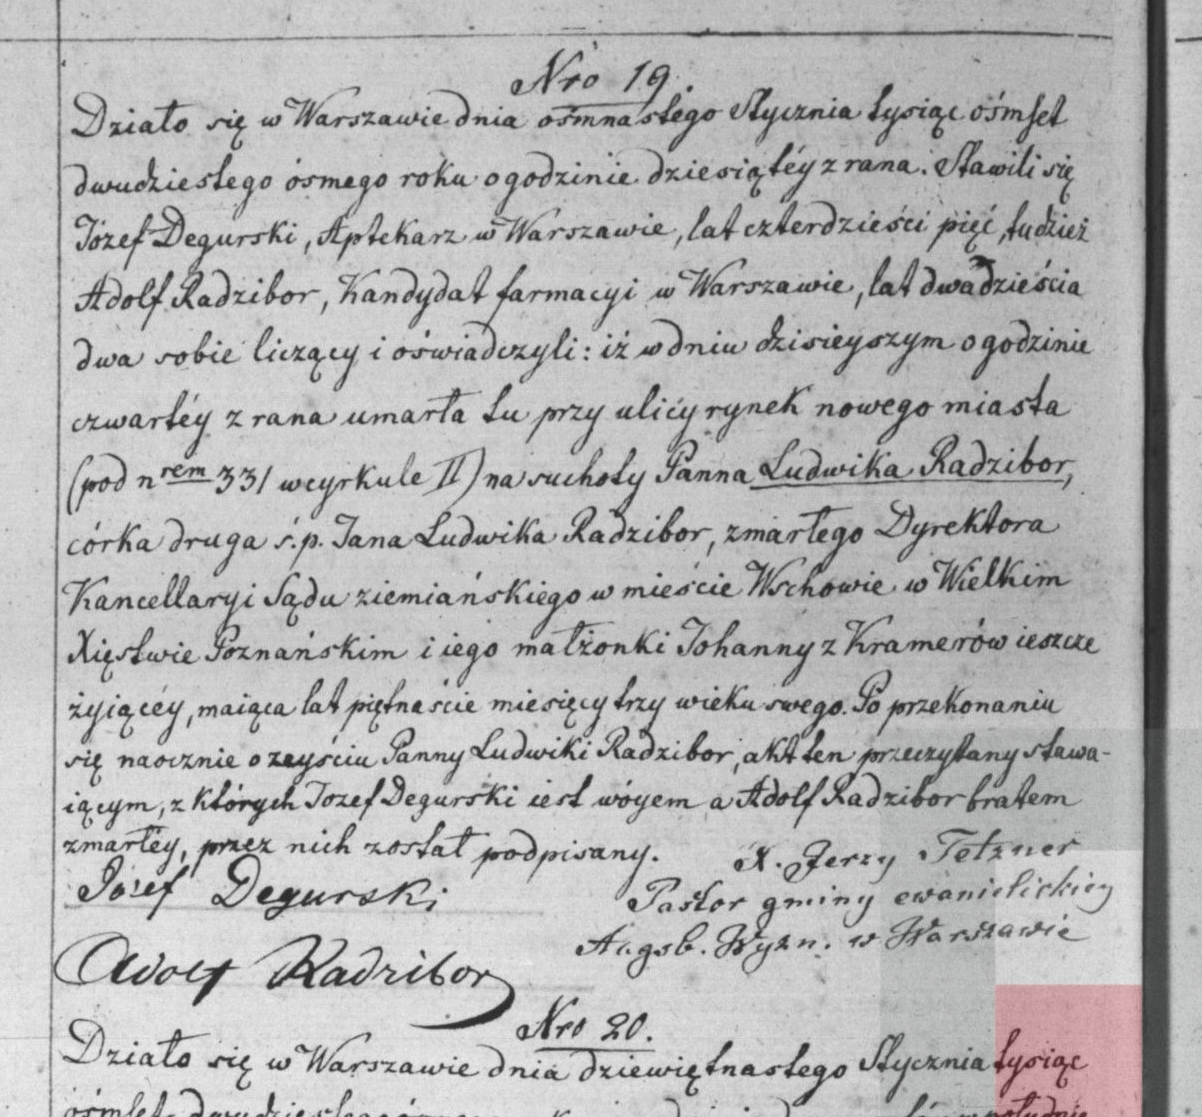 Nro 19.
Działo się w Warszawie dnia ośmnastego Stycznia tysiąc ośmset
dwudziestego ósmego roku o godzinie dziesiątéy z rana. Stawili się
Józef Degurski, Aptekarz w Warszawie, lat czterdzieści pięć, tudzież
Adolf Radzibor, Kandydat farmacyi w Warszawie, lat dwadzieścia
dwa sobie liczący i oświadczyli: iż w dniu dzisieyszym o godzinie
czwartéy z rana umarła tu przy ulicy rynek nowego miasta
(pod nrem 331 w cyrkule II) na suchoty Panna Ludwika Radzibor,
córka druga ś.p. Jana Ludwika Radzibor, zmarłego Dyrektora
Kancellaryi Sądu ziemiańskiego w mieście Wschowie w Wielkim
Xięstwie Poznańskim i iego małżonki Johanny z Kramerów ieszcze
żyiącéy, maiąca lat piętnaście miesięcy trzy wieku swego. Po przekonaniu
się naocznie o zeyściu Panny Ludwiki Radzibor, akt ten przeczytany stawa-
iącym, z których Jozef Degurski iest wóyem a Adolf Radzibor bratem
zmarłéy, przez nich został podpisany.
X. Jerzy Tetzner
Józef Degurski
Pastor gminy ewanielickiey
Augsb. Wyzn. w Warszawie
Adolf Radzibor
Nro 20.
Działo się w Warszawie dnia dziewiętnastego Stycznia tysiąc
ośmset dwudziestego